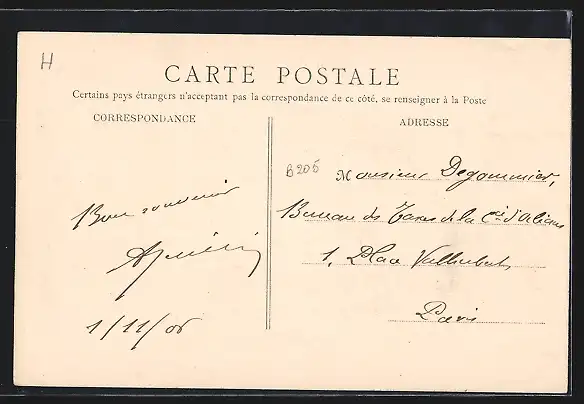 H
CARTE POSTALE
Certains pays étrangers n'acceptant pas la correspondance de ce côté, se renseigner à la Poste
CORRESPONDANCE
ADRESSE
B206
Monsieur Degommier,
Bureau des Taxes de la Cie d'Orléans
1, Place Valhubert,
Paris
Bon souvenir
1/11/06